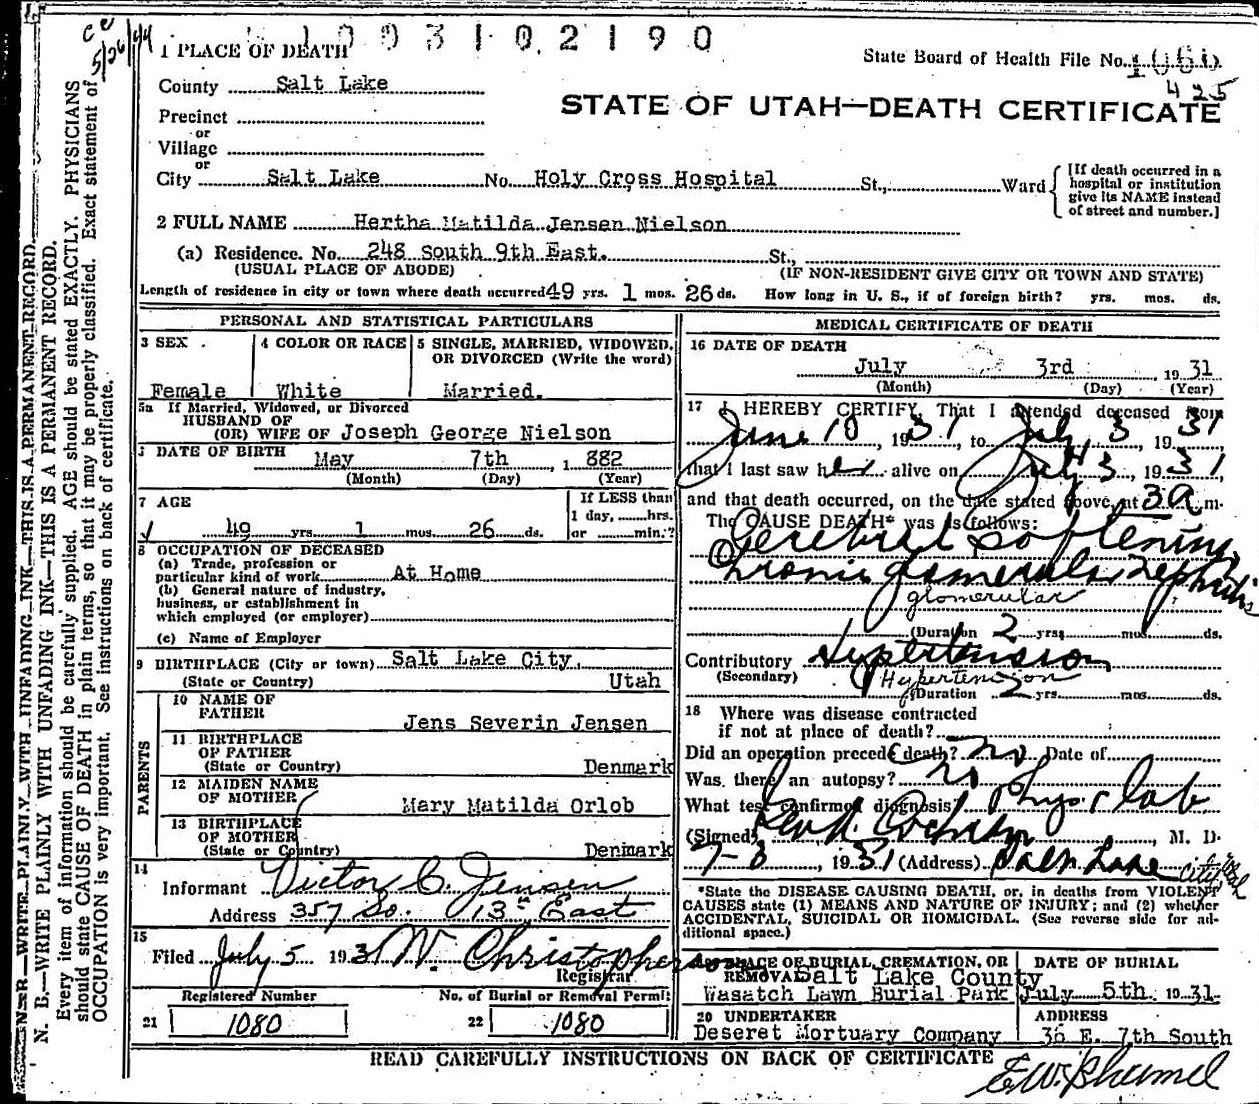 1003102190
ce 5/26/44
1 PLACE OF DEATH
State Board of Health File No.
425
County Salt Lake
STATE OF UTAH—DEATH CERTIFICATE
Precinct
or
Village
or
City Salt Lake No. Holy Cross Hospital St., Ward
[If death occurred in a hospital or institution give its NAME instead of street and number.]
2 FULL NAME Hertha Matilda Jensen Nielson
(a) Residence. No. 248 South 9th East. St.,
(USUAL PLACE OF ABODE) (IF NON-RESIDENT GIVE CITY OR TOWN AND STATE)
Length of residence in city or town where death occurred 49 yrs. 1 mos. 26 ds. How long in U. S., if of foreign birth? yrs. mos. ds.
PERSONAL AND STATISTICAL PARTICULARS
3 SEX 4 COLOR OR RACE 5 SINGLE, MARRIED, WIDOWED, OR DIVORCED (Write the word)
Female White Married.
5a If Married, Widowed, or Divorced
HUSBAND OF
(OR) WIFE OF Joseph George Nielson
DATE OF BIRTH May 7th, 1882
(Month) (Day) (Year)
7 AGE If LESS than
1 day, hrs.
49 yrs. 1 mos. 26 ds. or min.?
8 OCCUPATION OF DECEASED
(a) Trade, profession or
particular kind of work At Home
(b) General nature of industry,
business, or establishment in
which employed (or employer)
(c) Name of Employer
9 BIRTHPLACE (City or town) Salt Lake City,
(State or Country) Utah
PARENTS
10 NAME OF
FATHER Jens Severin Jensen
11 BIRTHPLACE
OF FATHER
(State or Country) Denmark
12 MAIDEN NAME
OF MOTHER Mary Matilda Orlob
13 BIRTHPLACE
OF MOTHER
(State or Country) Denmark
14
Informant Victor C. Jensen
Address 357 So. 13th East
15
Filed July 5 1931 W. Christopherson
Registrar
Registered Number No. of Burial or Removal Permit
21 1080 22 1080
MEDICAL CERTIFICATE OF DEATH
16 DATE OF DEATH
July 3rd 1931
(Month) (Day) (Year)
17 I HEREBY CERTIFY, That I attended deceased from
June 10, 1931, to July 3 1931
that I last saw her alive on July 3, 1931,
and that death occurred, on the date stated above, at 3 a m.
The CAUSE DEATH* was as follows:
Cerebral Softening
Chronic glomerular nephritis
glomerular
(Duration 2 yrs. mos. ds.
Contributory Hypertension
(Secondary) Hypertension
(Duration 2 yrs. mos. ds.
18 Where was disease contracted
if not at place of death?
Did an operation precede death? no Date of
Was there an autopsy? no
What test confirmed diagnosis? Phys. & lab
(Signed) Geo. N. Cochran, M. D.
7-3, 1931 (Address) Salt Lake City
*State the DISEASE CAUSING DEATH, or, in deaths from VIOLENT
CAUSES state (1) MEANS AND NATURE OF INJURY; and (2) whether
ACCIDENTAL, SUICIDAL OR HOMICIDAL. (See reverse side for ad-
ditional space.)
PLACE OF BURIAL, CREMATION, OR
REMOVAL Salt Lake County
Wasatch Lawn Burial Park
DATE OF BURIAL
July 5th 1931.
20 UNDERTAKER
Deseret Mortuary Company
ADDRESS
36 E. 7th South
READ CAREFULLY INSTRUCTIONS ON BACK OF CERTIFICATE
N. B.—WRITE PLAINLY WITH UNFADING INK—THIS IS A PERMANENT RECORD.
N. B.—WRITE PLAINLY WITH UNFADING INK—THIS IS A PERMANENT RECORD.
Every item of information should be carefully supplied. AGE should be stated EXACTLY. PHYSICIANS
should state CAUSE OF DEATH in plain terms, so that it may be properly classified. Exact statement of
OCCUPATION is very important. See instructions on back of certificate.